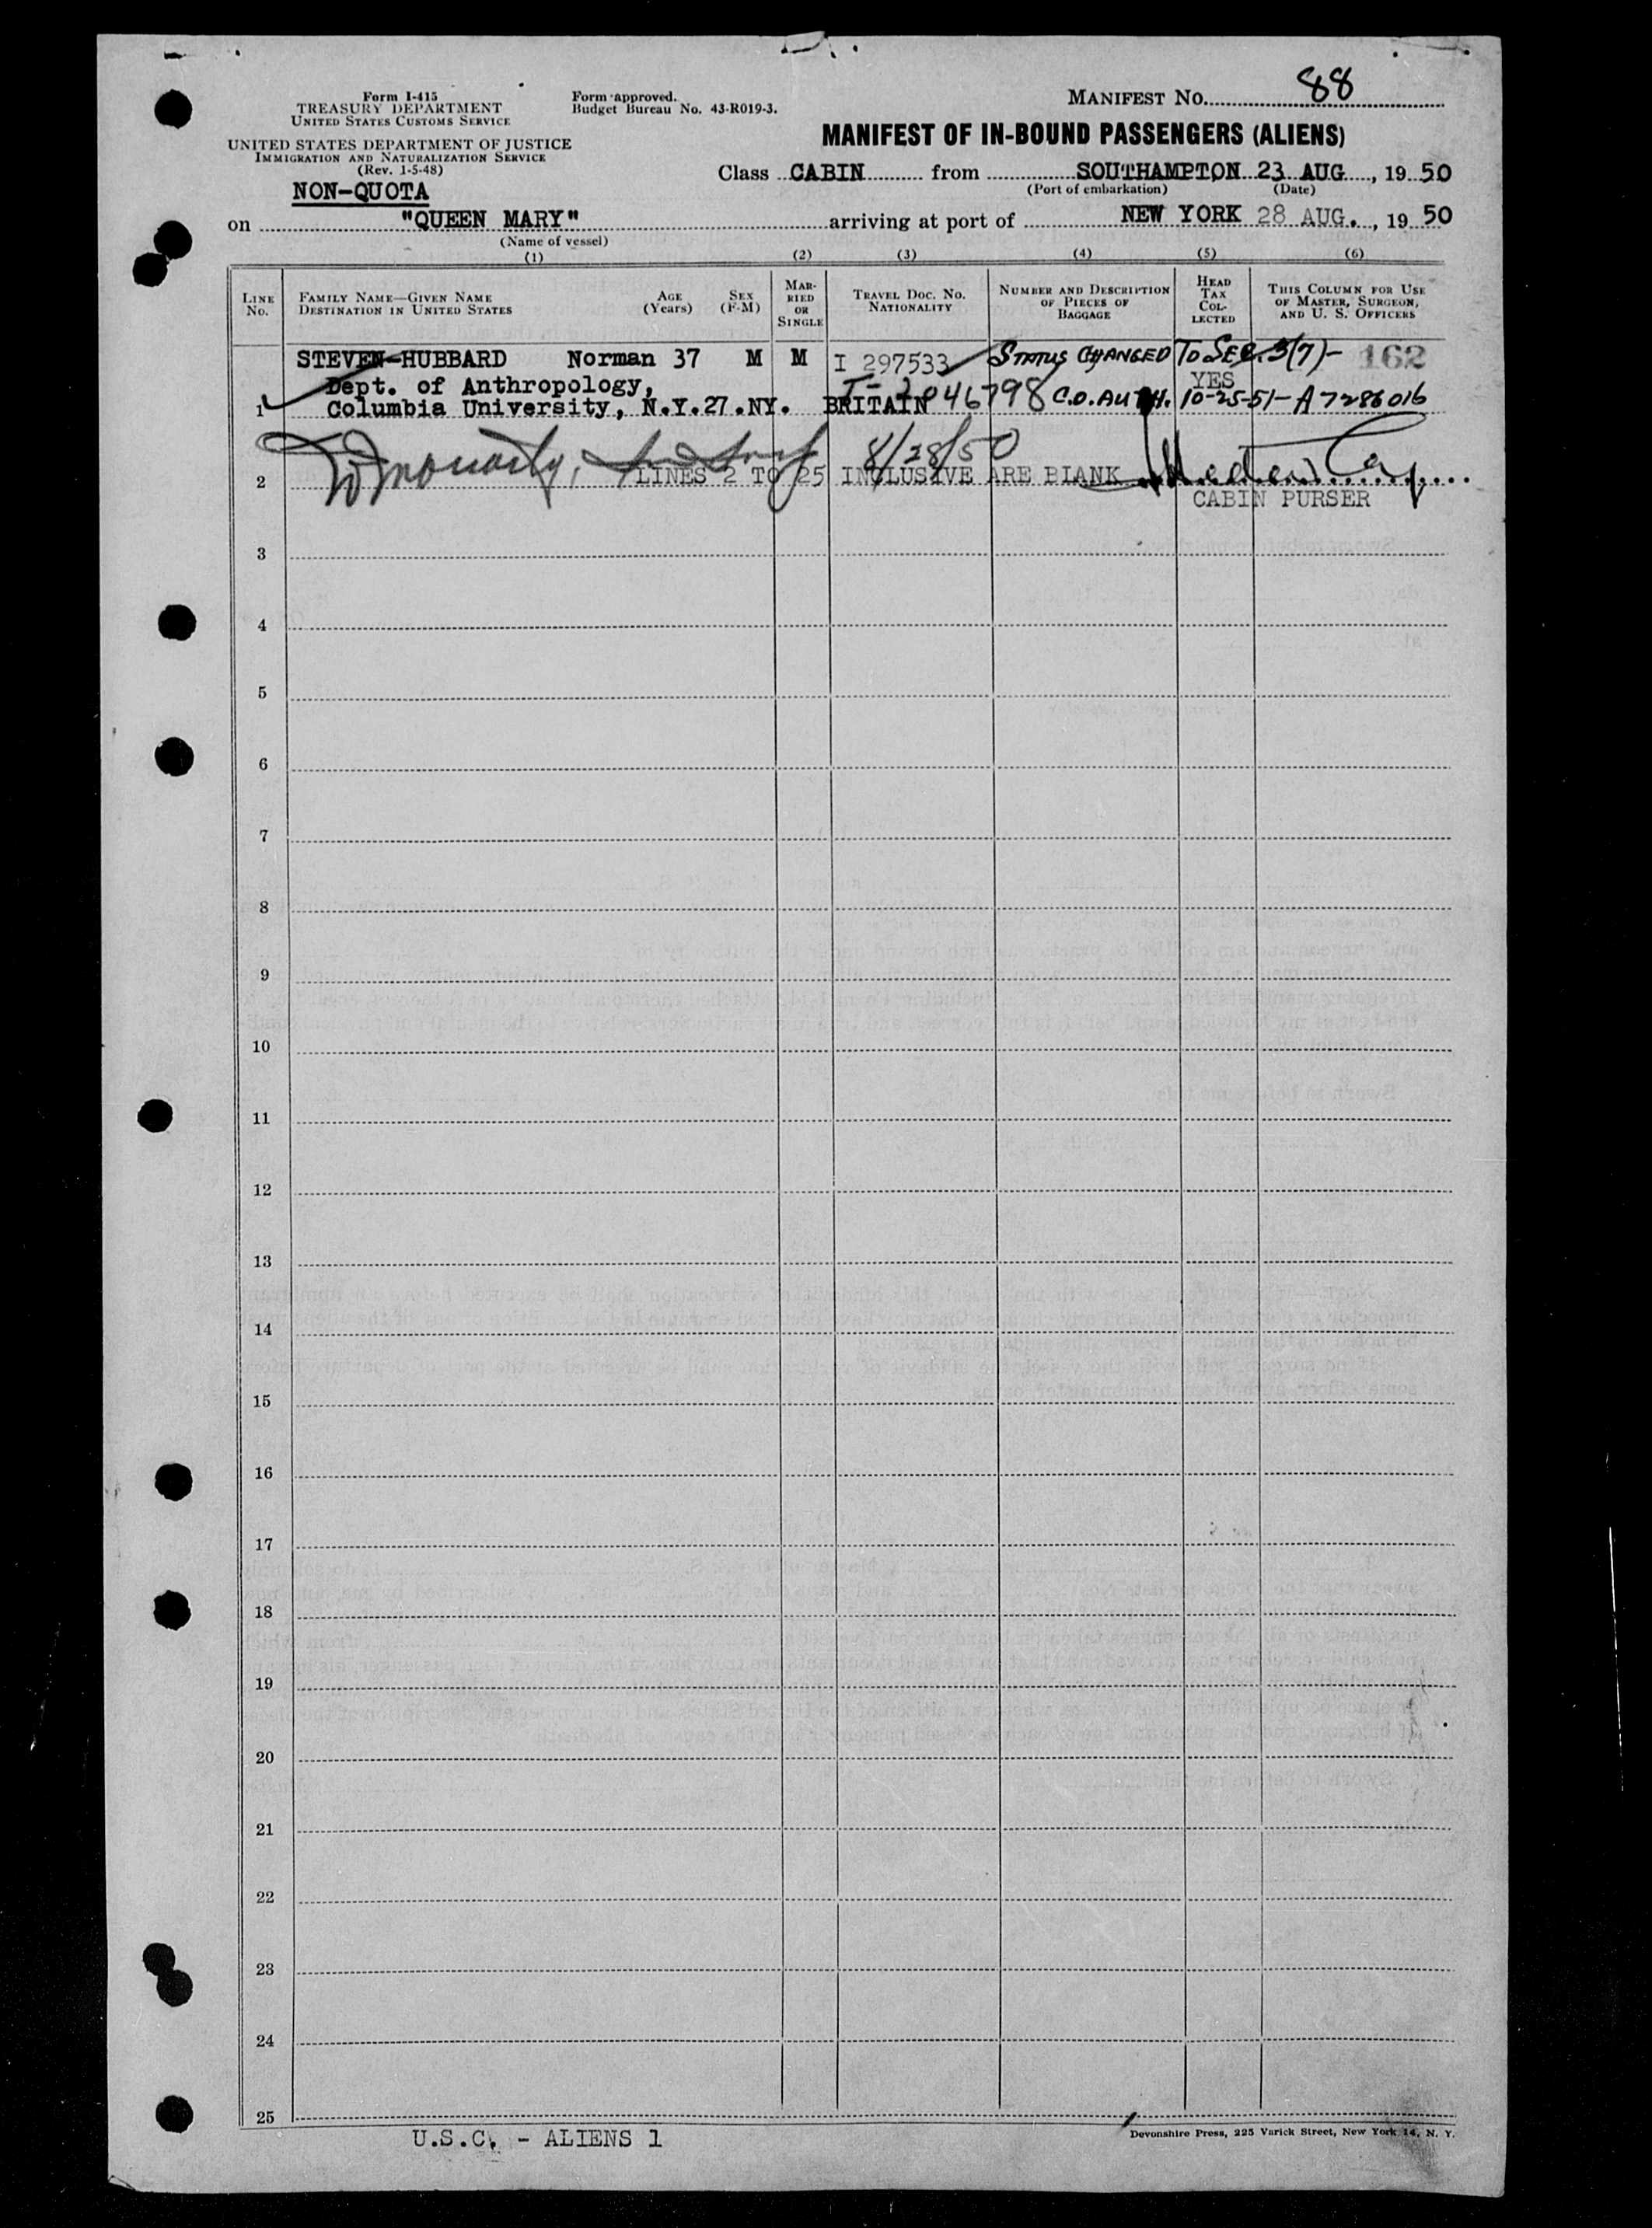 Form I-415
TREASURY DEPARTMENT
UNITED STATES CUSTOMS SERVICE
UNITED STATES DEPARTMENT OF JUSTICE
IMMIGRATION AND NATURALIZATION SERVICE
(Rev. 1-5-48)
NON-QUOTA
Form approved.
Budget Bureau No. 43-R019-3.
MANIFEST NO. 88
MANIFEST OF IN-BOUND PASSENGERS (ALIENS)
Class CABIN from SOUTHAMPTON 23 AUG , 19 50
(Port of embarkation) (Date)
on "QUEEN MARY" arriving at port of NEW YORK 28 AUG. , 19 50
(Name of vessel)
(1) (2) (3) (4) (5) (6)
LINE No.
FAMILY NAME—GIVEN NAME
DESTINATION IN UNITED STATES
AGE (Years)
SEX (F-M)
MARRIED OR SINGLE
TRAVEL DOC. NO. NATIONALITY
NUMBER AND DESCRIPTION OF PIECES OF BAGGAGE
HEAD TAX COLLECTED
THIS COLUMN FOR USE OF MASTER, SURGEON, AND U. S. OFFICERS
STEVEN-HUBBARD Norman 37 M M I 297533 STATUS CHANGED TO SEC. 3(7)- 162
Dept. of Anthropology, YES
1 Columbia University, N.Y.27.NY. BRITAIN C.O. AUTH. 10-25-51-A7286016
8/28/50
2 LINES 2 TO 25 INCLUSIVE ARE BLANK
CABIN PURSER
3
4
5
6
7
8
9
10
11
12
13
14
15
16
17
18
19
20
21
22
23
24
25
U.S.C. - ALIENS 1
Devonshire Press, 225 Varick Street, New York 14, N. Y.